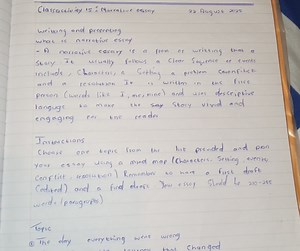 Class activity 15 : Narrative essay 26 August 2025
Writing and presenting
What is narrative essay
- A narrative essay is a form of writting that a
Story It usually follows a Clear Sequence of events
include, Characters a Setting a problem
and a resolution It is written in the first
person (words like I, me, mine) and uses descriptive
language to make the Story vivid and
engaging for the reader
Instructions
Choose one topic from the list provided and plan
your essay using a mind map (Characters, Setting, events,
Conflict, resolution) Remember to have a first draft
(edited) and a final draft. Your essay Should be
words (paragraphs)
Topic
The day everything went wrong
that Changed